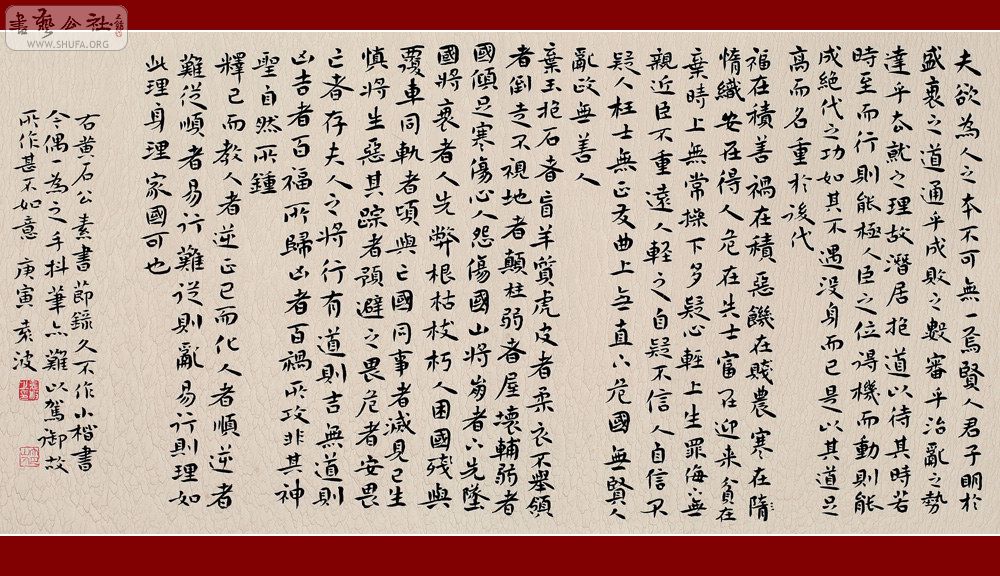 書藝公社
WWW.SHUFA.ORG
夫欲為人之本不可無一焉賢人君子明於
盛衰之道通乎成敗之數審乎治亂之勢
達乎去就之理故潛居抱道以待其時若
時至而行則能極人臣之位得機而動則能
成絕代之功如其不遇沒身而已是以其道足
高而名重於後代
福在積善禍在積惡饑在賤農寒在隋
惰織安在得人危在失士富在迎来貧在
棄時上無常操下多疑心輕上生罪侮下無
親近臣不重遠人輕之自疑不信人自信不
疑人枉士無正友曲上無直下危國無賢人
亂政無善人
棄玉抱石者盲羊質虎皮者柔衣不舉領
者倒走不視地者顛柱弱者屋壞輔弱者
國傾足寒傷心人怨傷國山將崩者下先墜
國將衰者人先弊根枯枝朽人困國殘與
覆車同軌者頃與亡國同事者滅見已生
慎將生惡其踪者預避之畏危者安畏
亡者存夫人之將行有道則吉無道則
凶吉者百福所歸凶者百禍所攻非其神
聖自然所鍾
釋己而教人者逆正己而化人者順逆者
難從順者易行難從則亂易行則理如
此理身理家國可也
右黄石公素書節錄久不作小楷書
今偶一為之手抖筆亦難以駕御故
所作甚不如意 庚寅 袁波